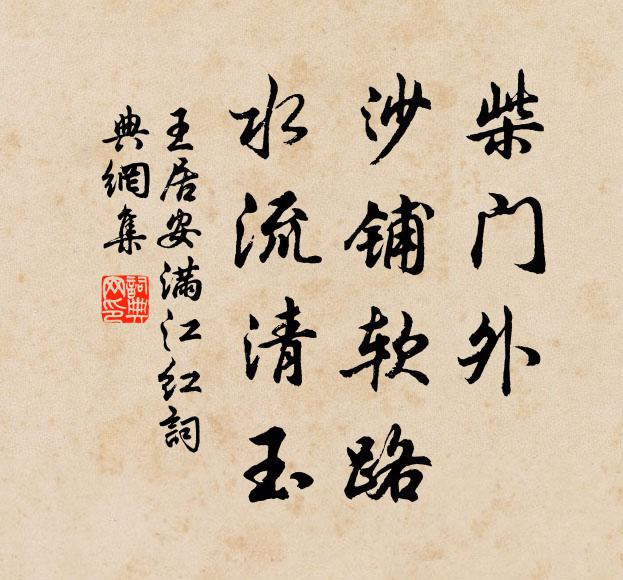 柴门外
沙铺软路
水流清玉
王居安满江红詞
典網集
詞典網印